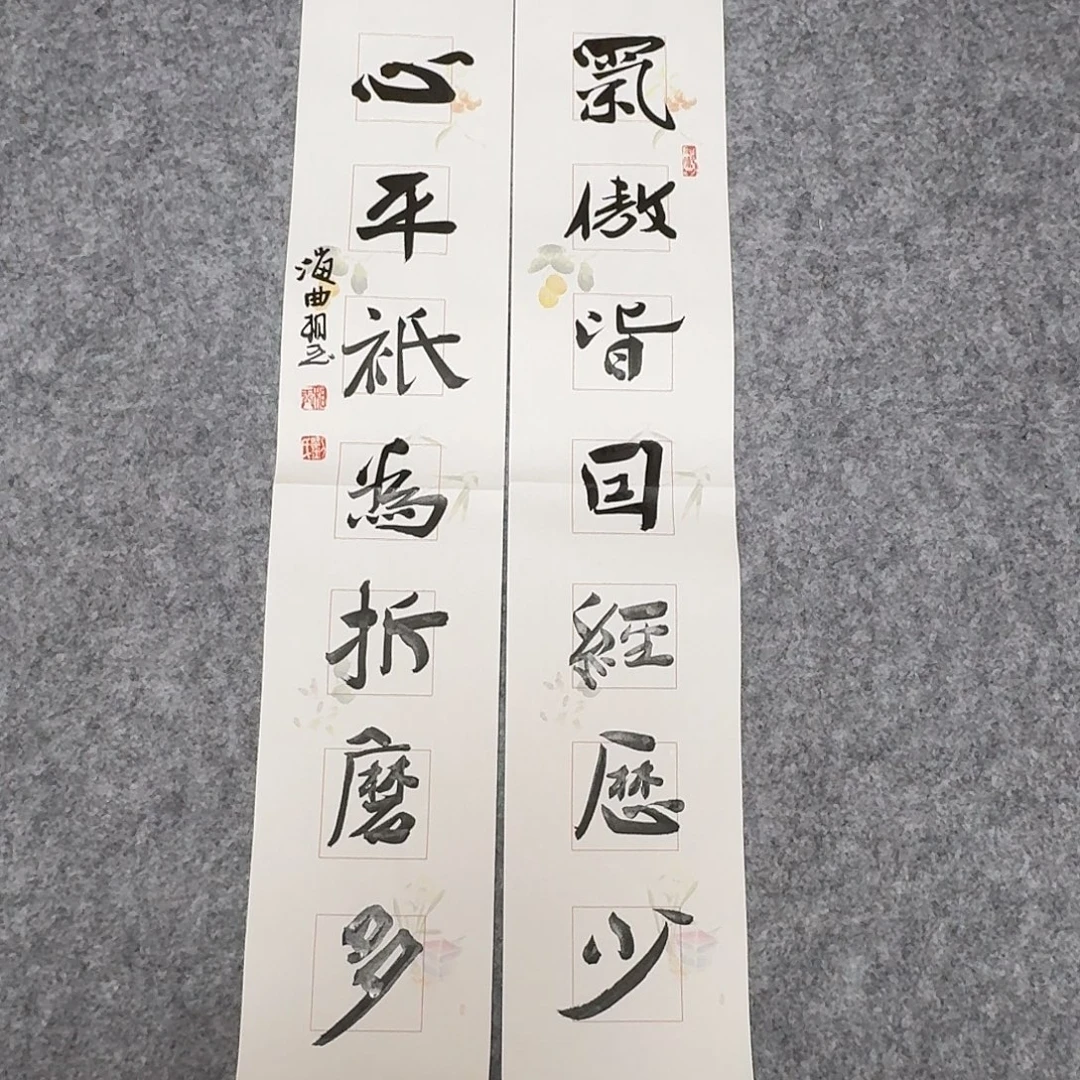 氣傲皆囙經歷少
心平祇為折磨多
海曲